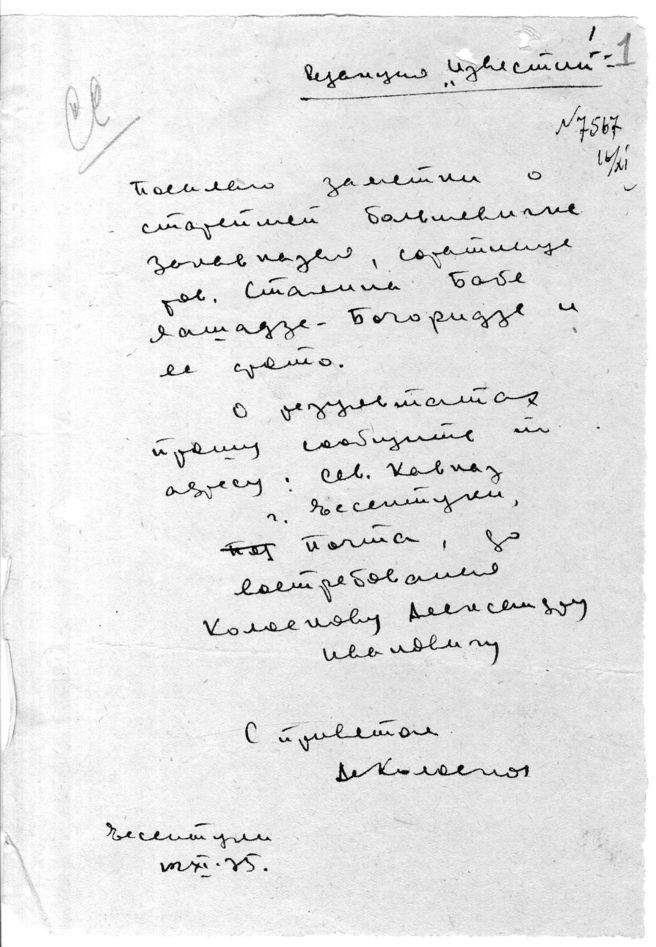 1
Редакция „Известий“
№ 7567
Посылаю заметки о
старейшей большевичке
Закавказья, соратнице
тов. Сталина Бабе
Лашадзе-Бочоридзе и
ее фото.
О результатах
прошу сообщить по
адресу: Сев. Кавказ
г. Ессентуки,
Почта, до
востребования
Колоскову Александру
Ивановичу
С приветом
Ал Колосков
Ессентуки
XI.35.